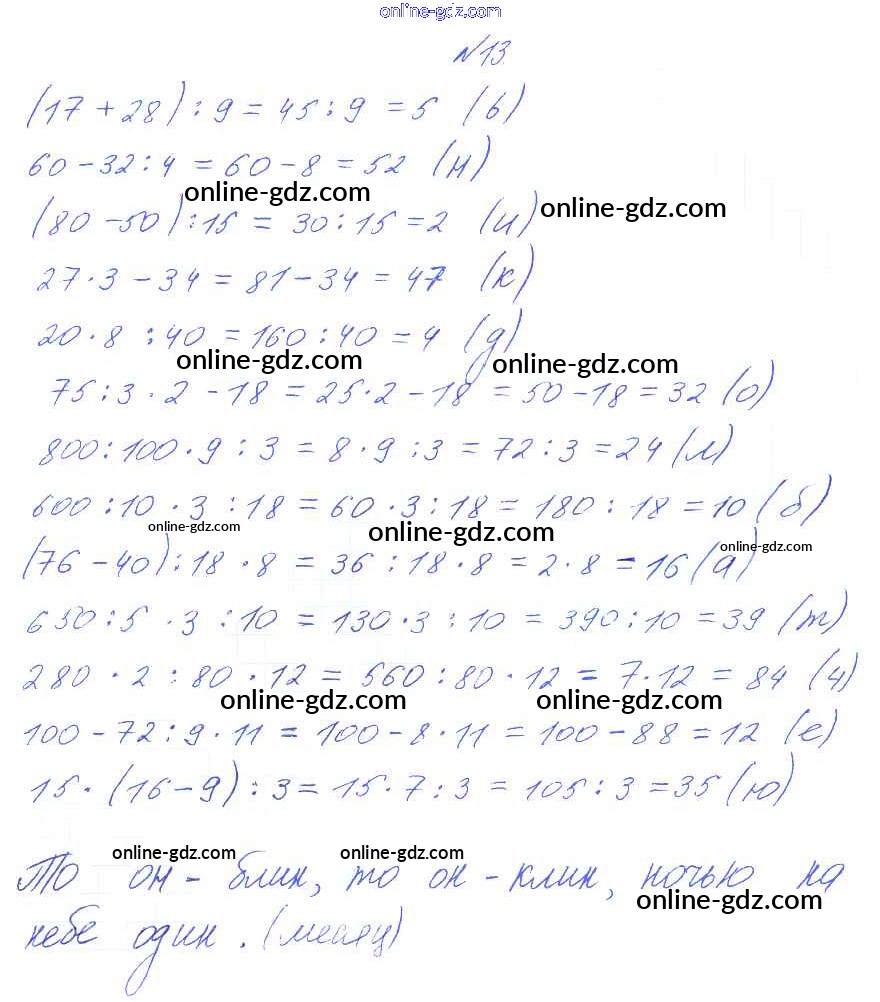 online-gdz.com
№13
(17 + 28) : 9 = 45 : 9 = 5 (ь)
60 - 32 : 4 = 60 - 8 = 52 (н)
online-gdz.com
(80 - 50) : 15 = 30 : 15 = 2 (и) online-gdz.com
27 · 3 - 34 = 81 - 34 = 47 (к)
20 · 8 : 40 = 160 : 40 = 4 (д)
online-gdz.com online-gdz.com
75 : 3 · 2 - 18 = 25 · 2 - 18 = 50 - 18 = 32 (о)
800 : 100 · 9 : 3 = 8 · 9 : 3 = 72 : 3 = 24 (л)
600 : 10 · 3 : 18 = 60 · 3 : 18 = 180 : 18 = 10 (б)
online-gdz.com online-gdz.com online-gdz.com
(76 - 40) : 18 · 8 = 36 : 18 · 8 = 2 · 8 = 16 (а)
650 : 5 · 3 : 10 = 130 · 3 : 10 = 390 : 10 = 39 (т)
280 · 2 : 80 · 12 = 560 : 80 · 12 = 7 · 12 = 84 (ч)
online-gdz.com online-gdz.com
100 - 72 : 9 · 11 = 100 - 8 · 11 = 100 - 88 = 12 (е)
15 · (16 - 9) : 3 = 15 · 7 : 3 = 105 : 3 = 35 (ю)
online-gdz.com online-gdz.com
То он - блин, то он - клин, ночью на
online-gdz.com
небе один. (месяц)